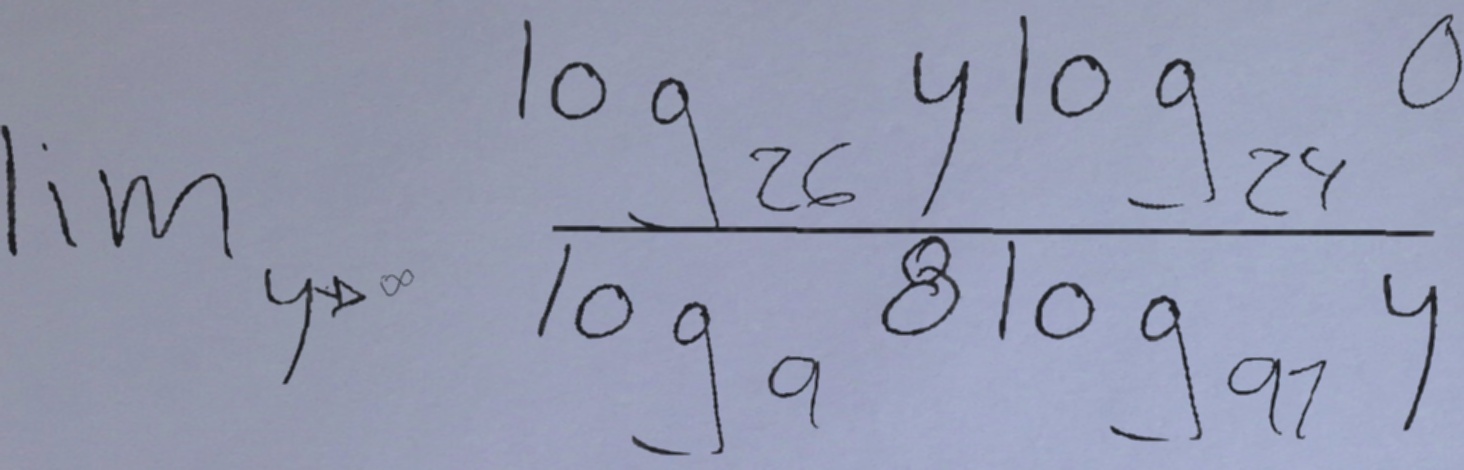 \lim_{y \to \infty} \frac{\log_{26} y \log_{24} 0}{\log_{9} 8 \log_{97} y}